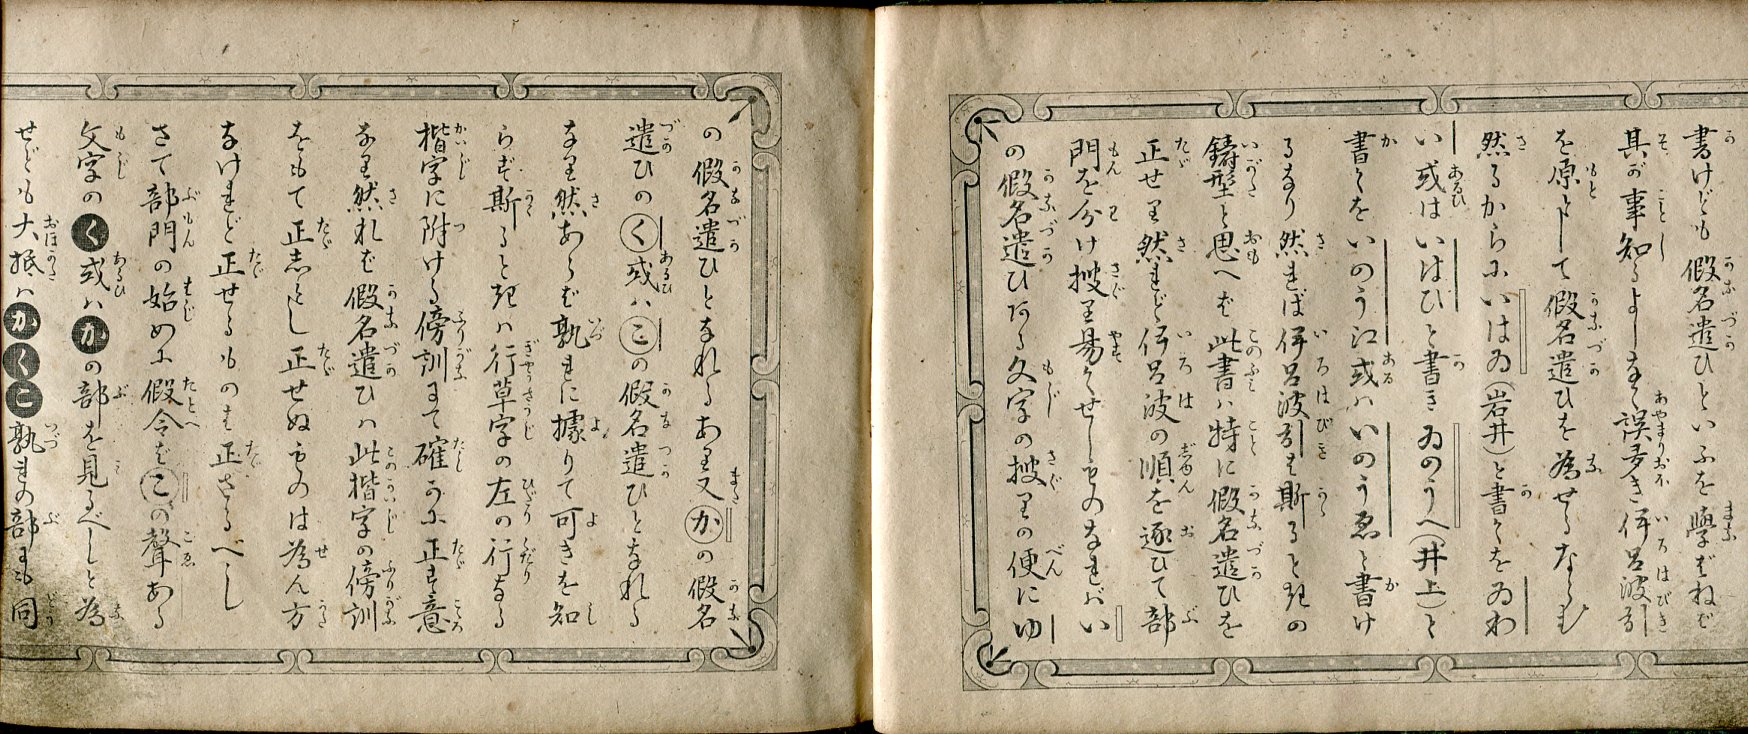 書けども假名遣ひといふを學ばねば
其が事知るよしなく誤多き伊呂波引
を原として假名遣ひを為せるならむ
然るからにいはゐ(岩井)と書くをゐわ
い或はいはひと書きゐのうへ(井上)と
書くをいのう江或はいのうゑと書け
るなり然れば伊呂波引も斯ると既の
鑄型と思へば此書は特に假名遣ひを
正せり然れど伊呂波の順を逐ひて部
門を分け搜り易くせしものなればい
の假名遣ひある文字の搜りの便にゆ
の假名遣ひとなれるあり又かの假名
遣ひのく或はこの假名遣ひとなれる
なり然あらば孰れに據りて可きを知
らず斯ると既は行草字の左の行なる
楷字に附ける傍訓にて確かに正す意
なり然れば假名遣ひは此楷字の傍訓
をもて正しとし正せぬものは為ん方
なけれど正せるものも正さるべし
さて部門の始めに假令ばこの聲ある
文字のく或はかの部を見るべしと為
せども大抵はかくこ孰れの部にも同